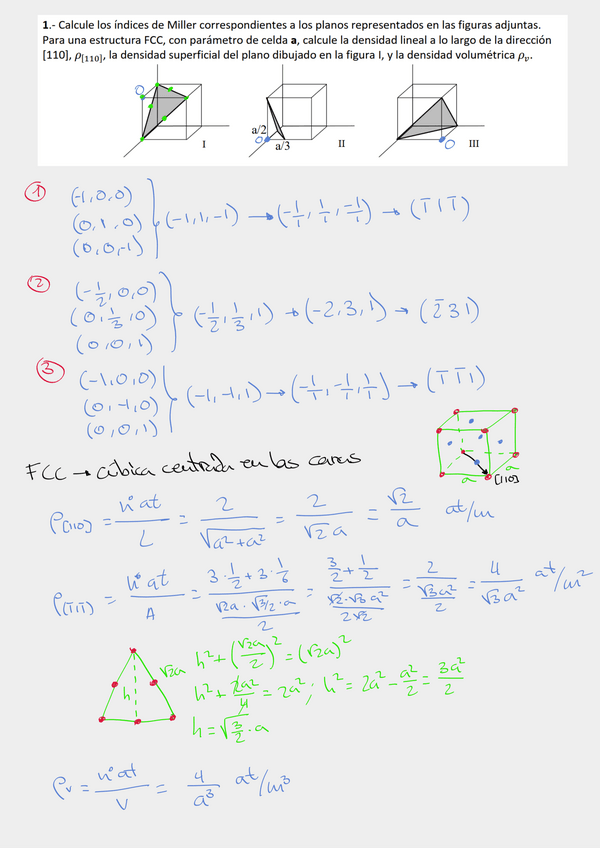 1.- Calcule los índices de Miller correspondientes a los planos representados en las figuras adjuntas.
Para una estructura FCC, con parámetro de celda a, calcule la densidad lineal a lo largo de la dirección
[110], ρ[110], la densidad superficial del plano dibujado en la figura I, y la densidad volumétrica ρv.
O
I
a/2
O
a/3
II
O
III
1
(-1,0,0)
(0,1,0)
(0,0,-1)
(-1,1,-1) → (-1/1, 1/1, -1/1) → (1̄ 1 1̄)
2
(-1/2,0,0)
(0,1/3,0)
(0,0,1)
(-1/2,1/3,1) → (-2,3,1) → (2̄ 3 1)
3
(-1,0,0)
(0,-1,0)
(0,0,1)
(-1,-1,1) → (-1/1, -1/1, 1/1) → (1̄ 1̄ 1)
a
a
[110]
FCC → cúbica centrada en las caras
ρ[110] = nº at / L = 2 / √(a²+a²) = 2 / √2 a = √2 / a at/m
ρ(1̄11̄) = nº at / A = (3·1/2 + 3·1/6) / (√2a · √3/2 · a / 2) = (3/2 + 1/2) / (√2·√3 a² / 2√2) = 2 / (√3a² / 2) = 4 / √3a² at/m²
h
√2a
h² + (√2a / 2)² = (√2a)²
h² + 2a²/4 = 2a²; h² = 2a² - a²/2 = 3a²/2
h = √3/2 · a
ρv = nº at / V = 4 / a³ at/m³